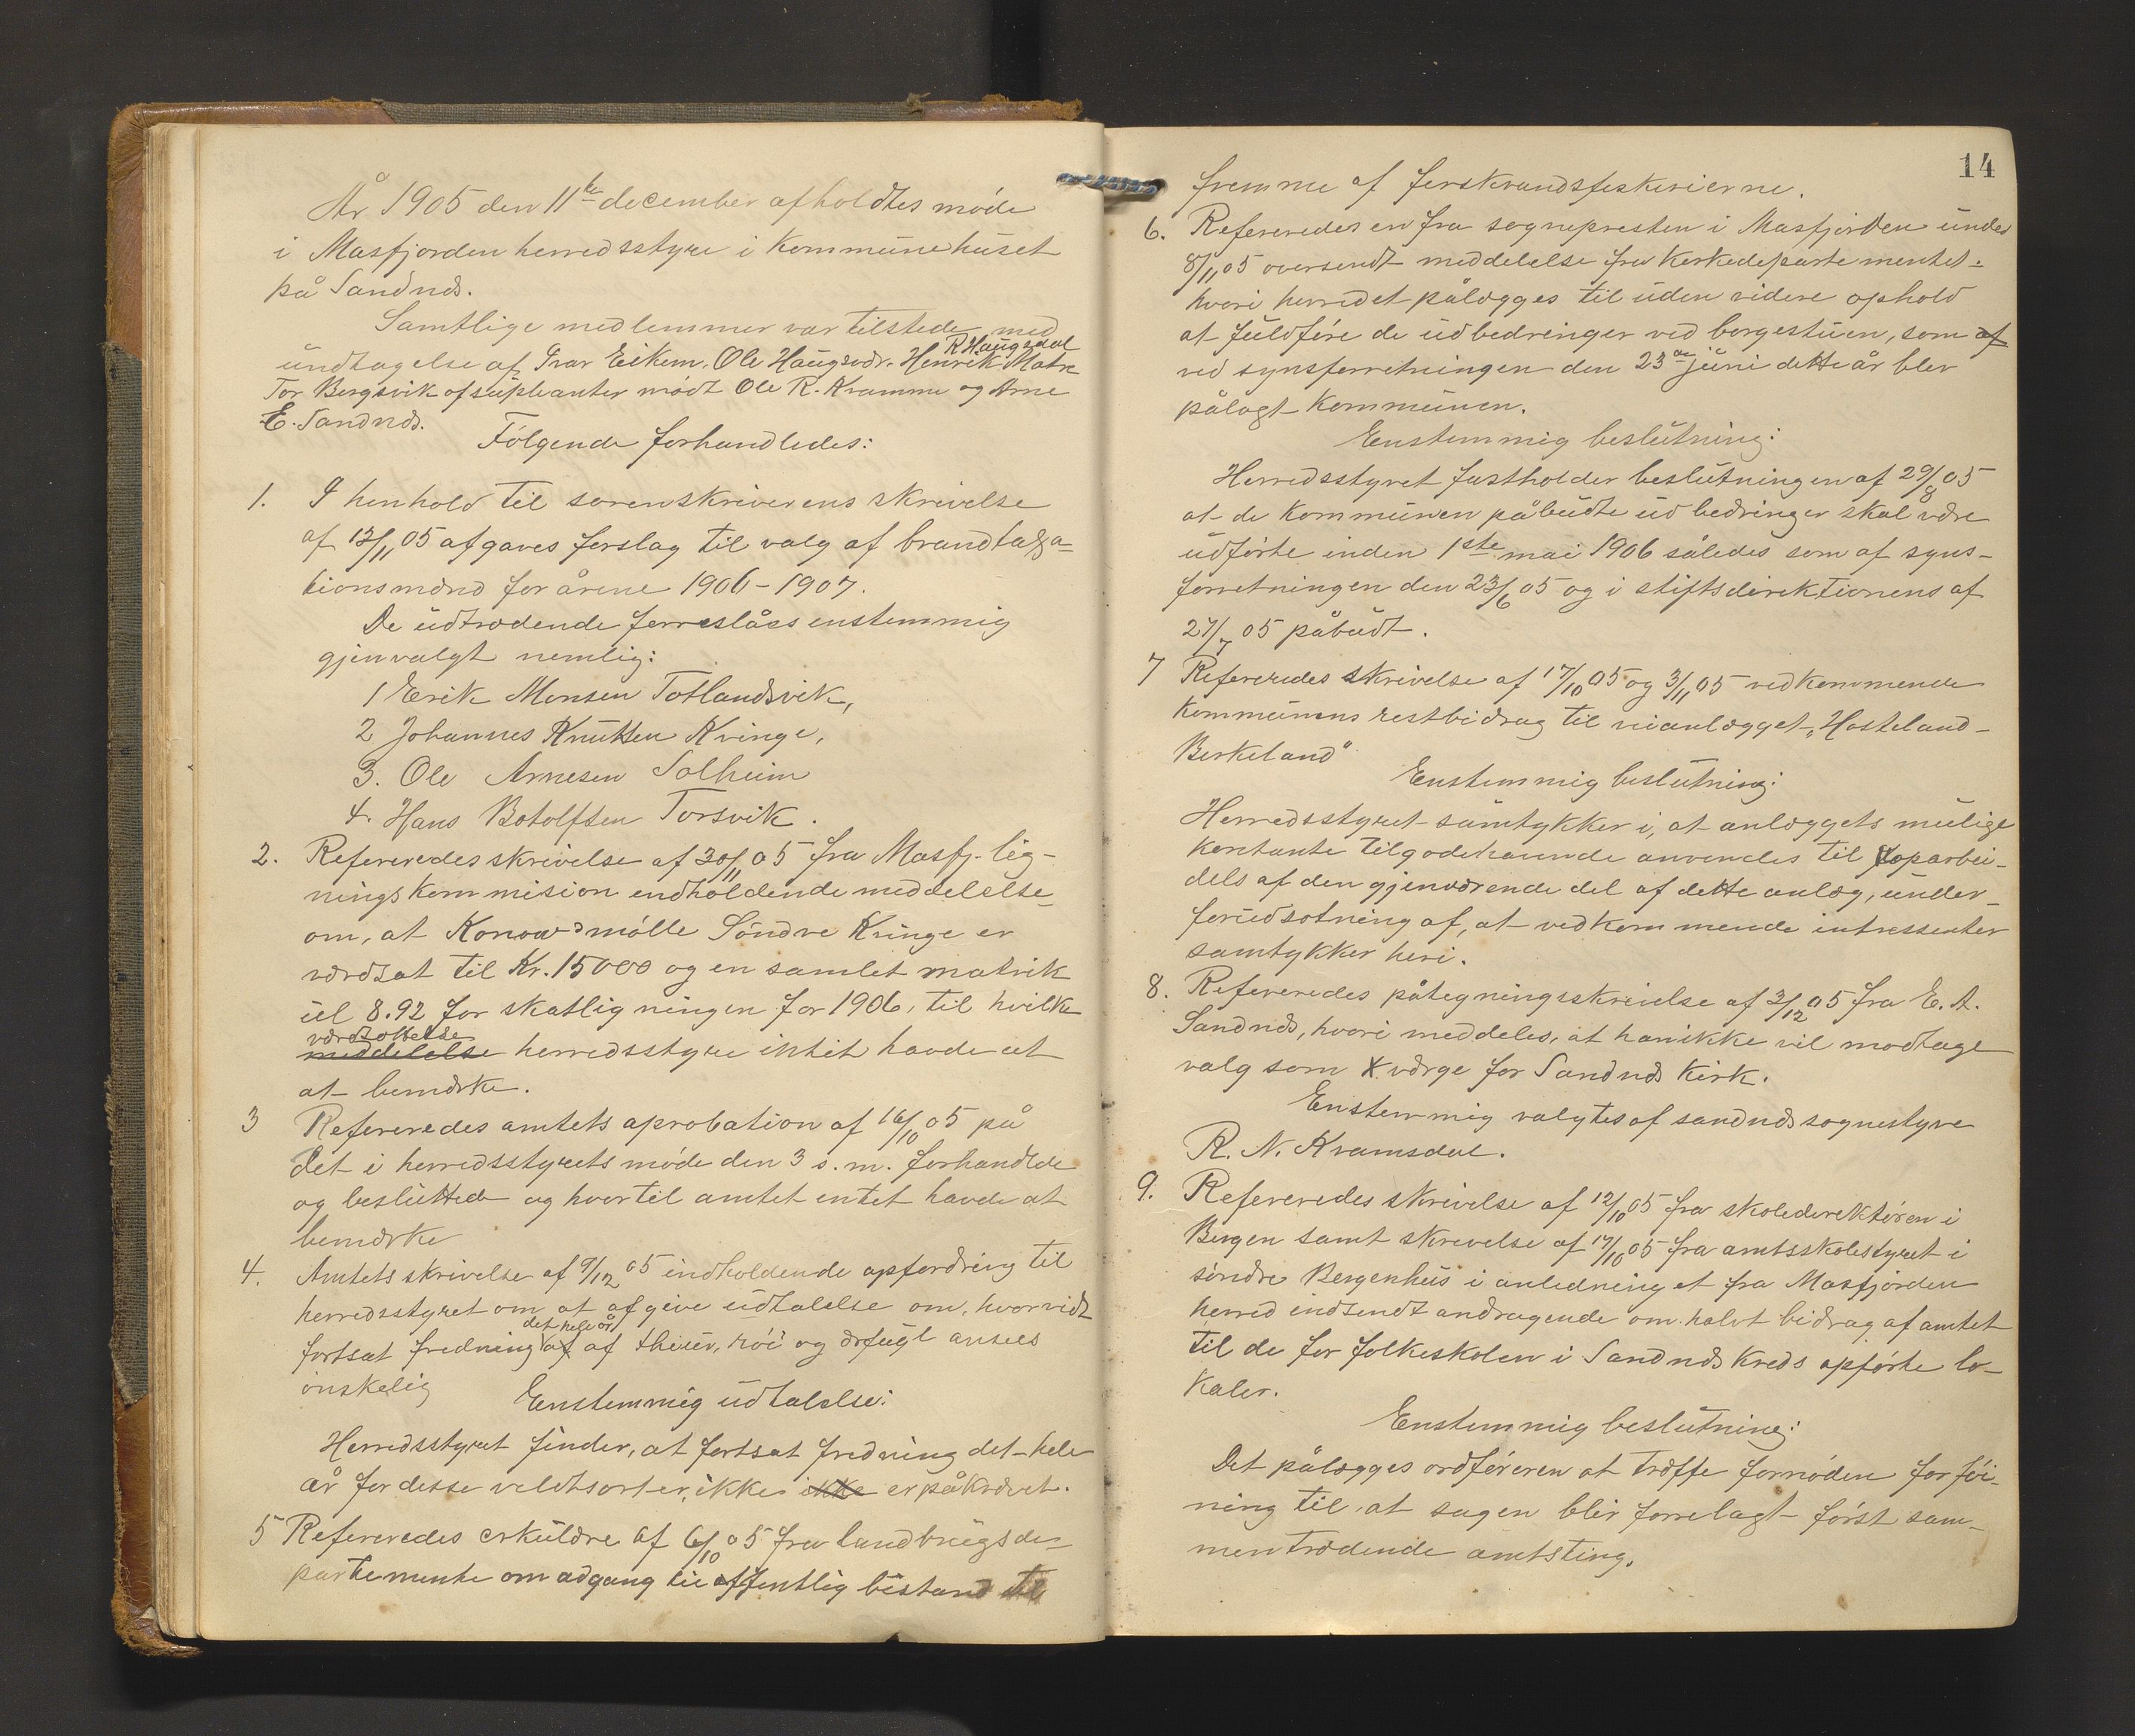 År 1905 den 11te december afholdtes møde
i Masfjorden herredsstyre i Kommunehuset
på Sandnæs.
Samtlige medlemmer var tilstede med
R Haugsdal
undtagelse af Ivar Eikem, Ole Haugsvær. Henrik Matre
Tor Bergsvik af supleanter mødt Ole R. Kramme og Arne
E. Sandnæs.
Følgende forhandledes:
1. I henhold til sorenskriverens skrivelse
af 13/11 05 afgaves forslag til valg af brandtaxa-
tionsmænd for årene 1906-1907.
De udtrædende forreslåes enstemmig
gjenvalgt nemlig:
1 Erik Monsen Totlandsvik,
2 Johannes Knutsen Kvinge,
3. Ole Arnesen Solheim
4. Hans Botolfsen Torsvik.
2. Refereredes skrivelse af 30/11 05 fra Masfj. lig-
ningskommision endholdende meddelelse
om, at Konow's mølle Søndre Kvinge er
værdsat til Kr. 15000 og en samlet matrik
ul 8.92 for skatligningen for 1906, til hvilke
værdsættelse
meddelelse herredsstyre intet havde at
at bemærke.
3 Refereredes amtets aprobation af 16/10 05 på
det i herredsstyrets møde den 3 s. m. forhandlede
og besluttede og hvortil amtet entet havde at
bemærke
4. Amtets skrivelse af 9/12 05 indholdende opfordring til
herredsstyret om at afgive udtalelse om, hvorvidt
det hele år
fortsat fredning af af thiur, røi og ørfugl ansees
ønskelig
Enstemmig udtalelse:
Herredsstyret finder, at fortsat fredning det hele
år for desse veldtsorter, ikke ikke er påkrævet.
5 Refereredes cirkulære af 6/10 05 fra landbrugsde-
partemente om adgang til offentlig bistand til
14
fremme af ferskvandsfeskerierne.
6. Refereredes en fra sognepresten i Masfjorden under
8/11 05 oversendt meddelelse fra Kerkedepartementet:
hvori herredet pålægges til uden videre ophold
at fuldføre de udbedringer ved borgestuen, som af
ved synsforretningen den 23de juni dette år blev
pålagt Kommunen.
Enstemmig beslutning:
Herredsstyret fastholder beslutningen af 29/8 05
at de Kommunen påbudte udbedringer skal være
udførte inden 1ste mai 1906 således som af syns-
forretningen den 23/6 05 og i stiftsdirektionens af
27/7 05 påbudt.
7 Refereredes skrivelse af 17/10 05 og 3/11 05 vedkommende
Kommunens restbidrag til veianlægget „Hosteland-
Berkeland"
Enstemmig beslutning:
Herredsstyret samtykker i, at anlæggets mulige
kontante tilgodehavende anvendes til oparbei-
dels af den gjenværende del af dette anlæg, under
forudsætning af, at vedkommende intressenter
samtykker heri.
8. Refereredes påtegningsskrivelse af 3/12 05 fra E. A.
Sandnæs, hvori meddeles, at han ikke vil modtage
valg som værge for Sandnæs Kirk.
Enstemmig valgtes af sandnæs sognestyre
R. N. Kvamsdal.
9. Refereredes skrivelse af 12/10 05 fra skoledirektøren i
Bergen samt skrevelse af 17/10 05 fra amtsskolestyret i
søndre Bergenhus i anledning et fra Masfjorden
herred indsendt andragende om halvt bidrag af amtet
til de for folkeskolen i Sandnæs Kreds opførte lo-
kaler.
Enstemmig beslutning:
Det pålægges ordføreren at træffe fornøden forføi-
ning til, at sagen blir forrelagt først sam-
mentrædende amtsting.